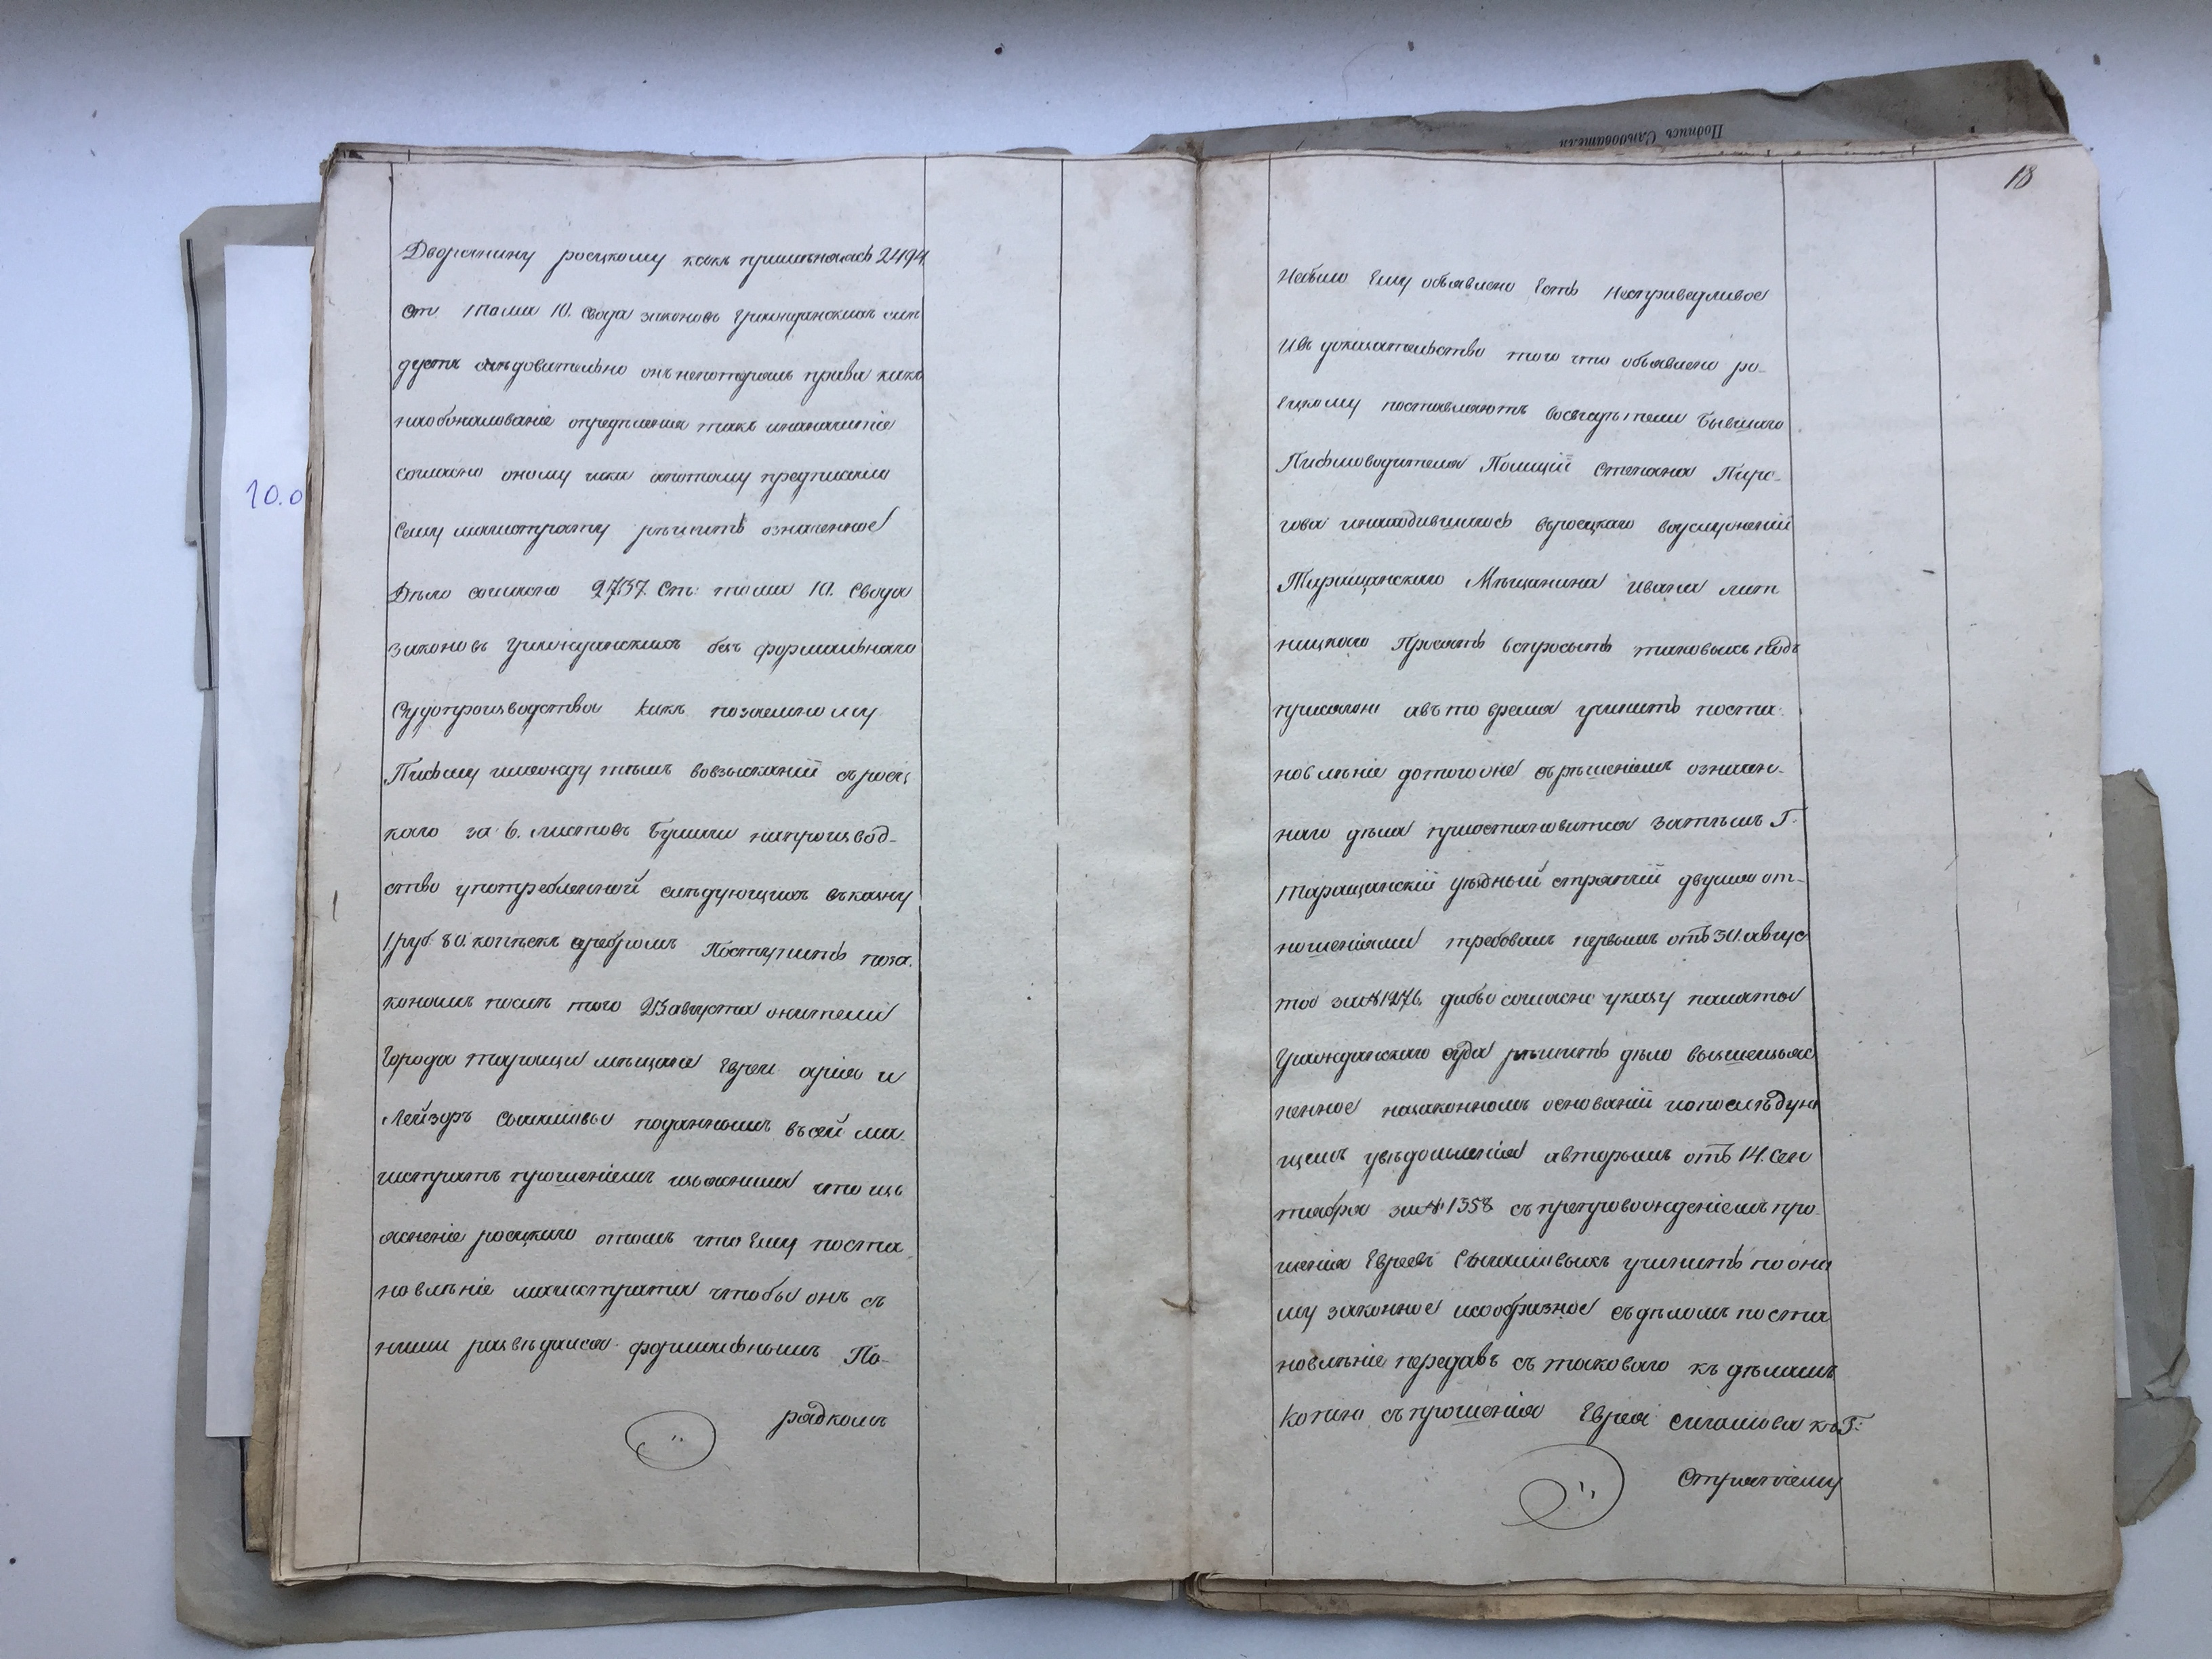 Дворянину росцкому какъ примѣчаясь 2494
ст. тома 10. свода законовъ Гражданскихъ слѣ
дуетъ слѣдовательно онъ непотерялъ права какъ
наобжалованіе опредѣленія такъ
согласно оному иска апотому предписала
Сему магистрату рѣшить означенное
Дѣло согласно 2737. Ст: тома 10. Свода
законовъ Гражданскихъ безъ формальнаго
Судопроизводства какъ позаемному
Письму имежду тѣмъ вовзысканіи съросц
каго за 6. листовъ бумаги напроизвод-
ство употребленной слѣдующихъ въказну
1 руб. 80. копѣекъ сребромъ Поступить поза.
кономъ послѣ того 25 августа жители
Города таращи мѣщане Евреи арія и
Лейзоръ поданнымъ въсей ма.
гистратъ прошеніемъ изъяснили что изъ
ясненіе росцкаго отомъ что Ему поста
новлѣніе магистрата чтобы онъ съ
ними развѣдался формальнымъ По-
рядкомъ
18
Небыло Ему объявлено Есть Несправедливое
Ивъ доказательство того что объявлено ро-
сцкому поставляютъ восвидѣтели бывшаго
Письмоводителя Полиціи Степана
гова инаходившагося въросцкаго воуслуженіи
Таращанскаго Мѣщанина Ивана лит
ницкаго Просятъ вспросить таковыхъ подъ
присягою авъ то время учинить поста.
новлѣніе дотогоже съ рѣшеніемъ означен-
наго дѣла пріостановится затѣмъ Г.
таращанскій уѣздный стряпчій двумя от-
ношеніями требовалъ первымъ отъ 30. авгус
та за № 1276. дабы согласно указу палаты
Гражданскаго суда рѣшить дѣло вышеизъяс
ненное назаконномъ основаніи ипослѣдую
щемъ увѣдомленія авторымъ отъ 14. сен
тября за № 1358 съ препровожденіемъ про-
шенія Евреевъ учинить по она
му законное исообразное съдѣломъ поста
новлѣніе передавъ съ таковаго къ дѣламъ
Копію съ прошенія Еврея къ Г:
Стряпчему